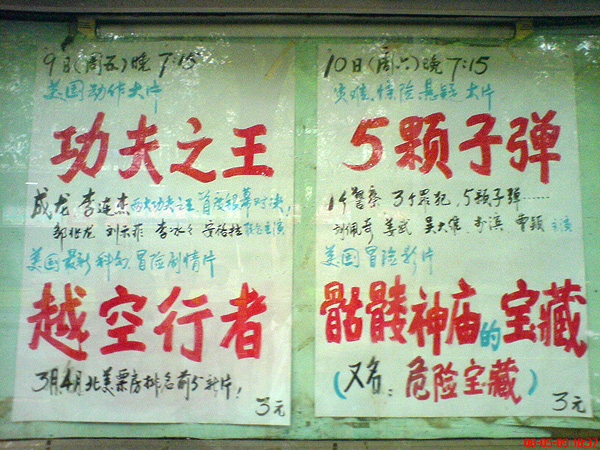 9日(周五)晚 7:15
美国动作大片
功夫之王
成龙、李连杰两大功夫之王首度银幕对决!
邹兆龙 刘亦菲 李冰冰 联合主演
美国最新科幻、冒险剧情片
越空行者
3月.4月北美票房排名前5新片!
3元
10日(周六)晚 7:15
灾难、惊险、悬疑大片
5颗子弹
1个警察 3个罪犯,5颗子弹……
刘佩奇 姜武 吴大维 曹颖 主演
美国冒险影片
骷髅神庙的宝藏
(又名:危险宝藏)
3元